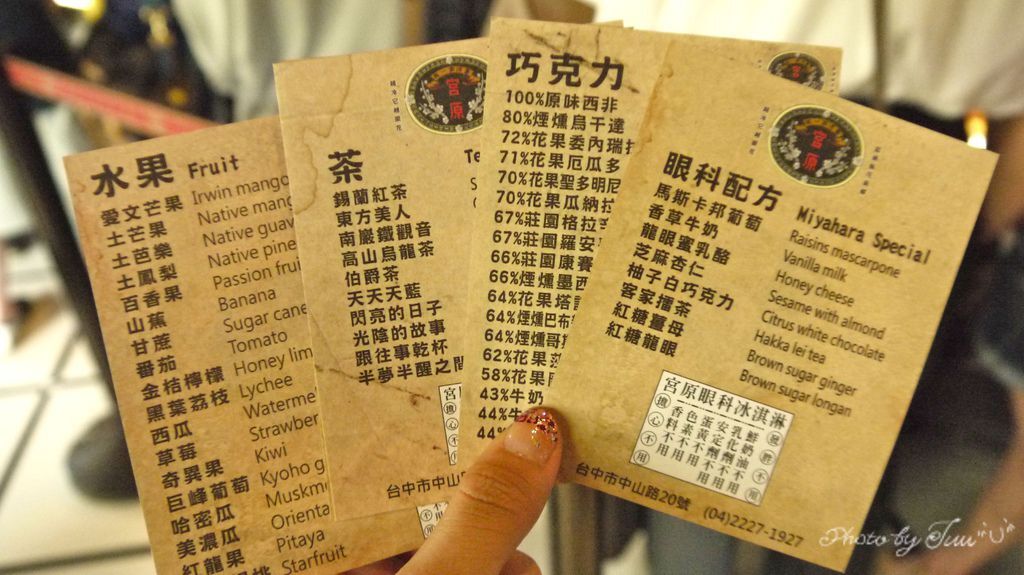 水果 Fruit
愛文芒果 Irwin mango
土芒果 Native mang
土芭樂 Native guav
土鳳梨 Native pine
百香果 Passion frui
山蕉 Banana
甘蔗 Sugar cane
番茄 Tomato
金桔檸檬 Honey lim
黑葉荔枝 Lychee
西瓜 Waterme
草莓 Strawber
奇異果 Kiwi
巨峰葡萄 Kyoho g
哈密瓜 Muskm
美濃瓜 Orienta
紅龍果 Pitaya
桃 Starfruit
茶 Te
宮原
錫蘭紅茶
東方美人
南巖鐵觀音
高山烏龍茶
伯爵茶
天天天藍
閃亮的日子
光陰的故事
跟往事乾杯
半夢半醒之間
台中市中山
巧克力
100%原味西非
80%煙燻烏干達
72%花果委內瑞拉
71%花果厄瓜多
70%花果聖多明尼
70%花果瓜納拉
67%莊園格拉
67%莊園羅安
66%莊園康賽
66%煙燻墨西
64%花果塔
64%煙燻巴布
64%煙燻哥
62%花果
58%花果
43%牛奶
44%牛
44%
宮原
眼科配方 Miyahara Special
馬斯卡邦葡萄 Raisins mascarpone
香草牛奶 Vanilla milk
龍眼蜜乳酪 Honey cheese
芝麻杏仁 Sesame with almond
柚子白巧克力 Citrus white chocolate
客家擂茶 Hakka lei tea
紅糖薑母 Brown sugar ginger
紅糖龍眼 Brown sugar longan
宮原眼科冰淇淋
香料不用
色素不用
蛋黃不用
安定劑不用
乳化劑不用
鮮奶油不用
台中市中山路20號 (04)2227-1927
Photo by Juu"U"